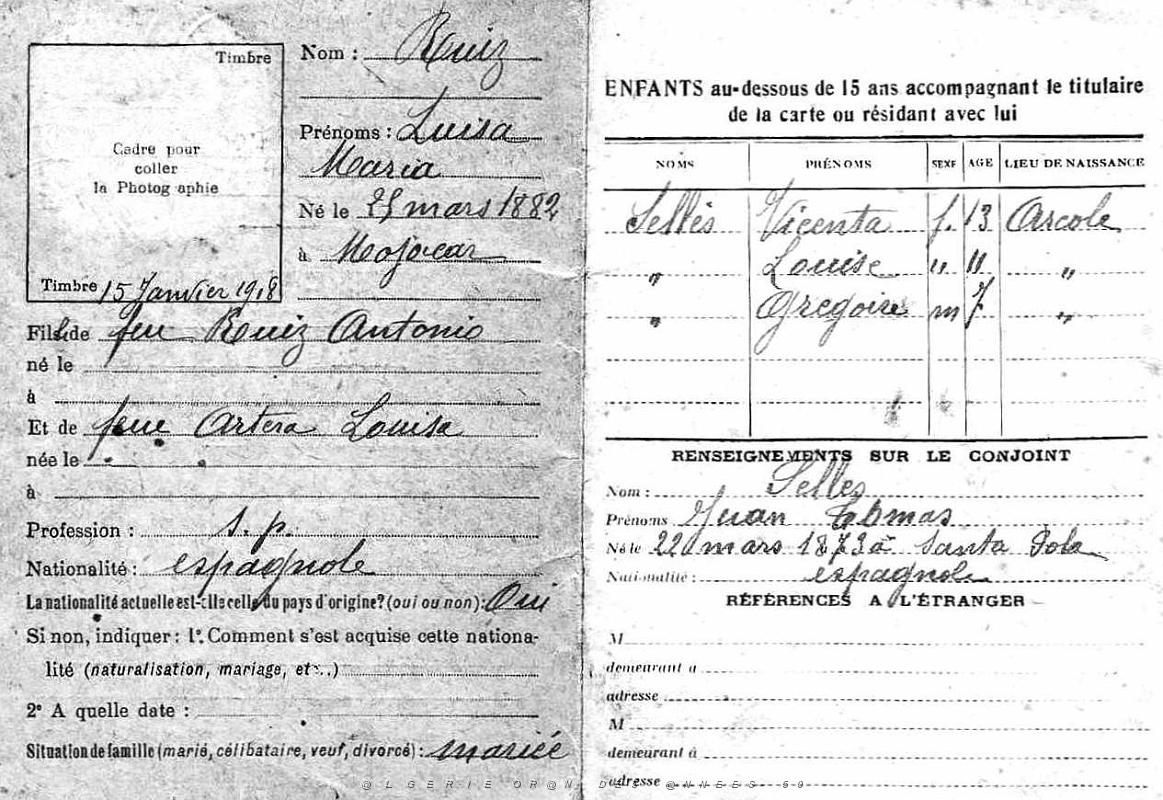 Timbre
Cadre pour
coller
la Photog aphie
Timbre 15 Janvier 1918
Nom : Ruiz
Prénoms : Luisa
Maria
Né le 25 mars 1882
à Mojacar
Fille de feu Ruiz Antonio
né le
à
Et de feue Artera Louise
née le
à
Profession : s. p.
Nationalité : espagnole
La nationalité actuelle est-elle celle du pays d'origine? (oui ou non) : Oui
Si non, indiquer : 1° Comment s'est acquise cette nationa-
lité (naturalisation, mariage, etc..)
2° A quelle date :
Situation de famille (marié, célibataire, veuf, divorcé) : mariée
ENFANTS au-dessous de 15 ans accompagnant le titulaire
de la carte ou résidant avec lui
NOMS PRÉNOMS SEXE AGE LIEU DE NAISSANCE
Sellés Vicenta f. 13 Arcole
" Louise " 11 "
" Gregoire m 7 "
RENSEIGNEMENTS SUR LE CONJOINT
Nom : Selles
Prénoms Juan Tomas
Né le 22 mars 1873 à Santa Pola
Nationalité : espagnole
RÉFÉRENCES A L'ÉTRANGER
M
demeurant à
adresse
M
demeurant à
adresse
@LGERIE OR@N DES @NNEES 50